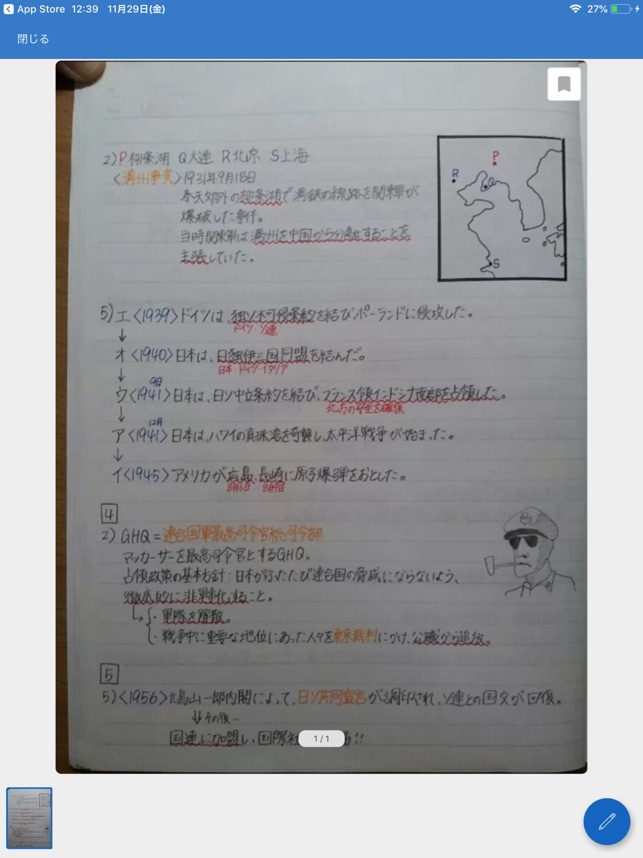 App Store 12:39 11月29日(金) 27%
閉じる
2) P 柳条湖 Q 大連 R 北京 S 上海
<満州事変> 1931年9月18日
奉天郊外の柳条湖で満鉄の線路を関東軍が
爆破した事件。
当時関東軍は満州を中国から分離することを
主張していた。
P
R
Q
S
5) エ <1939> ドイツは、独ソ不可侵条約を結びポーランドに侵攻した。
ドイツ・ソ連
↓
オ <1940> 日本は、日独伊三国同盟を結んだ。
日本 ドイツ イタリア
↓
ウ <1941> 日本は、日ソ中立条約を結び、フランス領インドシナ南部を占領した。
北方の安全を確保
↓ 12月
ア <1941> 日本は、ハワイの真珠湾を奇襲し、太平洋戦争が始まった。
↓
イ <1945> アメリカが広島、長崎に原子爆弾をおとした。
8月6日 8月9日
4
2) GHQ = 連合国軍最高司令官総司令部
マッカーサーを最高司令官とするGHQ。
占領政策の基本方針: 日本がふたたび連合国の脅威にならないよう、
徹底的に非軍事化すること。
・軍隊を解散。
・戦争中に重要な地位にあった人々を東京裁判にかけ、公職から追放。
5
5) <1956> 鳩山一郎内閣によって、日ソ共同宣言が調印され、ソ連との国交が回復。
↓その後…
国連に加盟し、国際社
!!
1 / 1